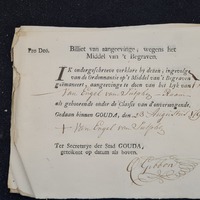 Pro Deo.
Billet van aangeevinge, wegens het
Middel van 't Begraven.
IK ondergeschreeve verklare by deezen, ingevolge
van de Ordonnantie op 't Middel van 't Begraven
geëmaneert, aangeevinge te doen van het Lyk van
Van Engel van
als gehoorende onder de Classis van d'onvermogende.
Gedaan binnen GOUDA, den 23 Augustus
Van Engel van
Ter Secretarye der Stad GOUDA,
geteikent op datum als boven.